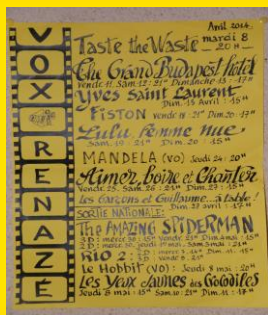 VOX
RENAZÉ
Avril 2014
Taste the Waste mardi 8
20H
The Grand Budapest hotel
Vendr. 11. Sam. 12: 21H Dimanche 13: 17H
Yves Saint Laurent
Dim. 13 Avril : 15H
FISTON Vendr 18: 21H Dim. 20: 17H
Lulu, femme nue
Sam. 19: 21H Dim. 20: 15H
MANDELA (VO) Jeudi 24: 20H
Aimer, boire et Chanter
Vendr. 25. Sam. 26: 21H Dim. 27: 15H
Les Garçons et Guillaume...à table!
Dim. 27 avril : 17H
SORTIE NATIONALE:
The AMAZING SPIDERMAN
3D: mercr. 30: 15H Dim. 4 mai: 15H
2D: mercr. 30, jeudi 1er mai, Sam. 3 mai: 21H
RIO 2
le Hobbit (VO): Jeudi 8 mai: 20H
Les Yeux Jaunes des Crocodiles
Jeudi 8 mai: 15H Sam. 10: 21H Dim. 11: 17H